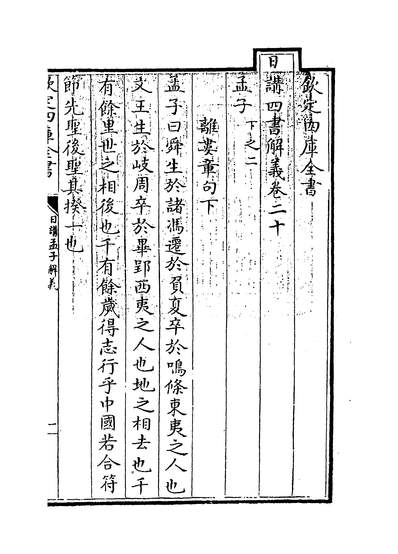 欽定四庫全書
日講四書解義卷二十
孟子 下之二
離婁章句下
孟子曰舜生於諸馮遷於負夏卒於鳴條東夷之人也
文王生於岐周卒於畢郢西夷之人也地之相去也千
有餘里世之相後也千有餘歲得志行乎中國若合符
節先聖後聖其揆一也
欽定四庫全書 日講孟子解義